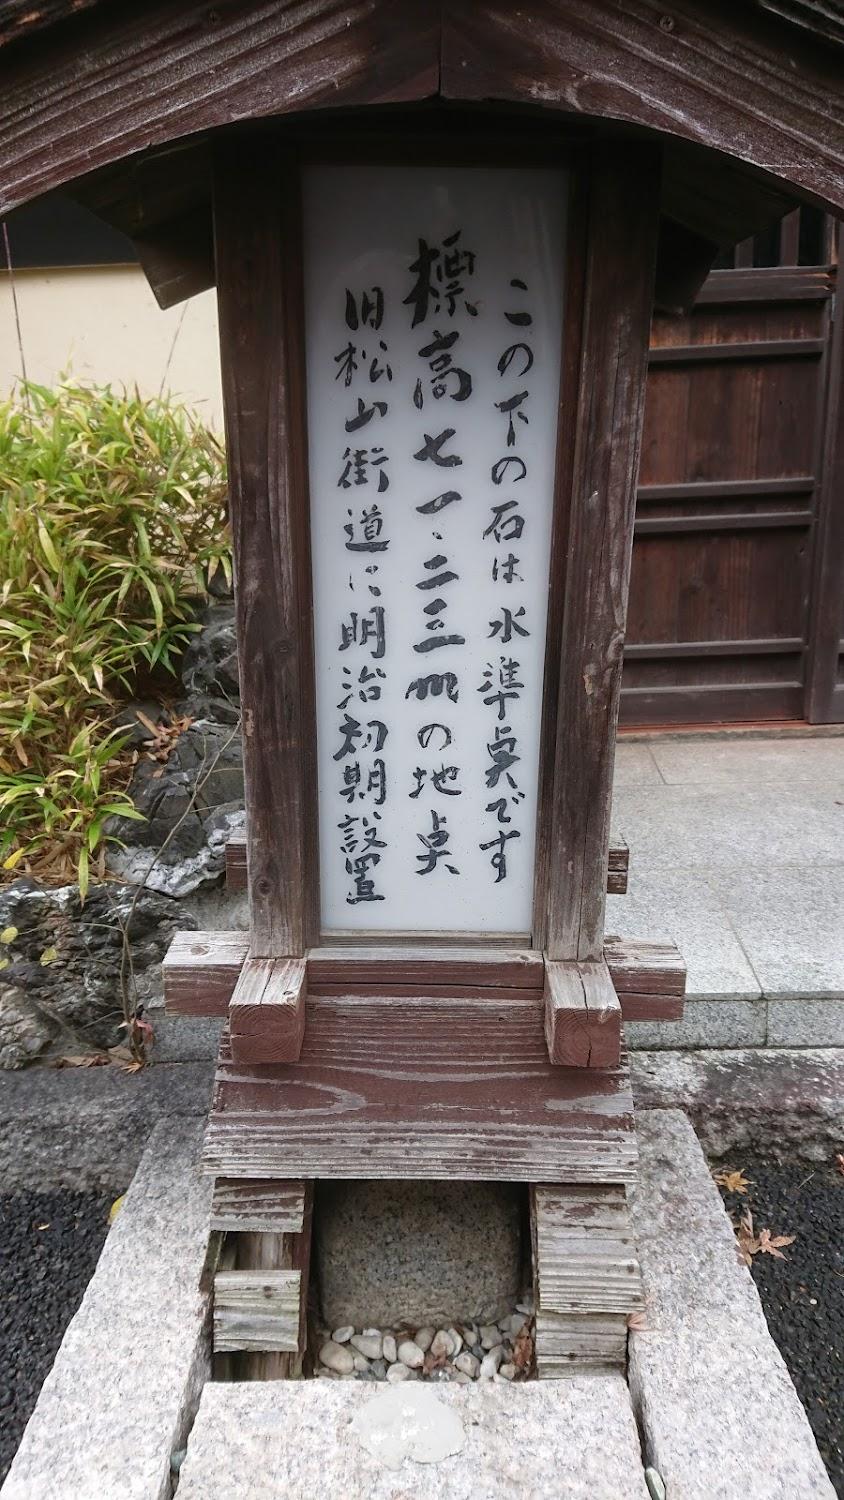 この下の石は水準点です
標高七一、二三mの地点
旧松山街道に明治初期設置